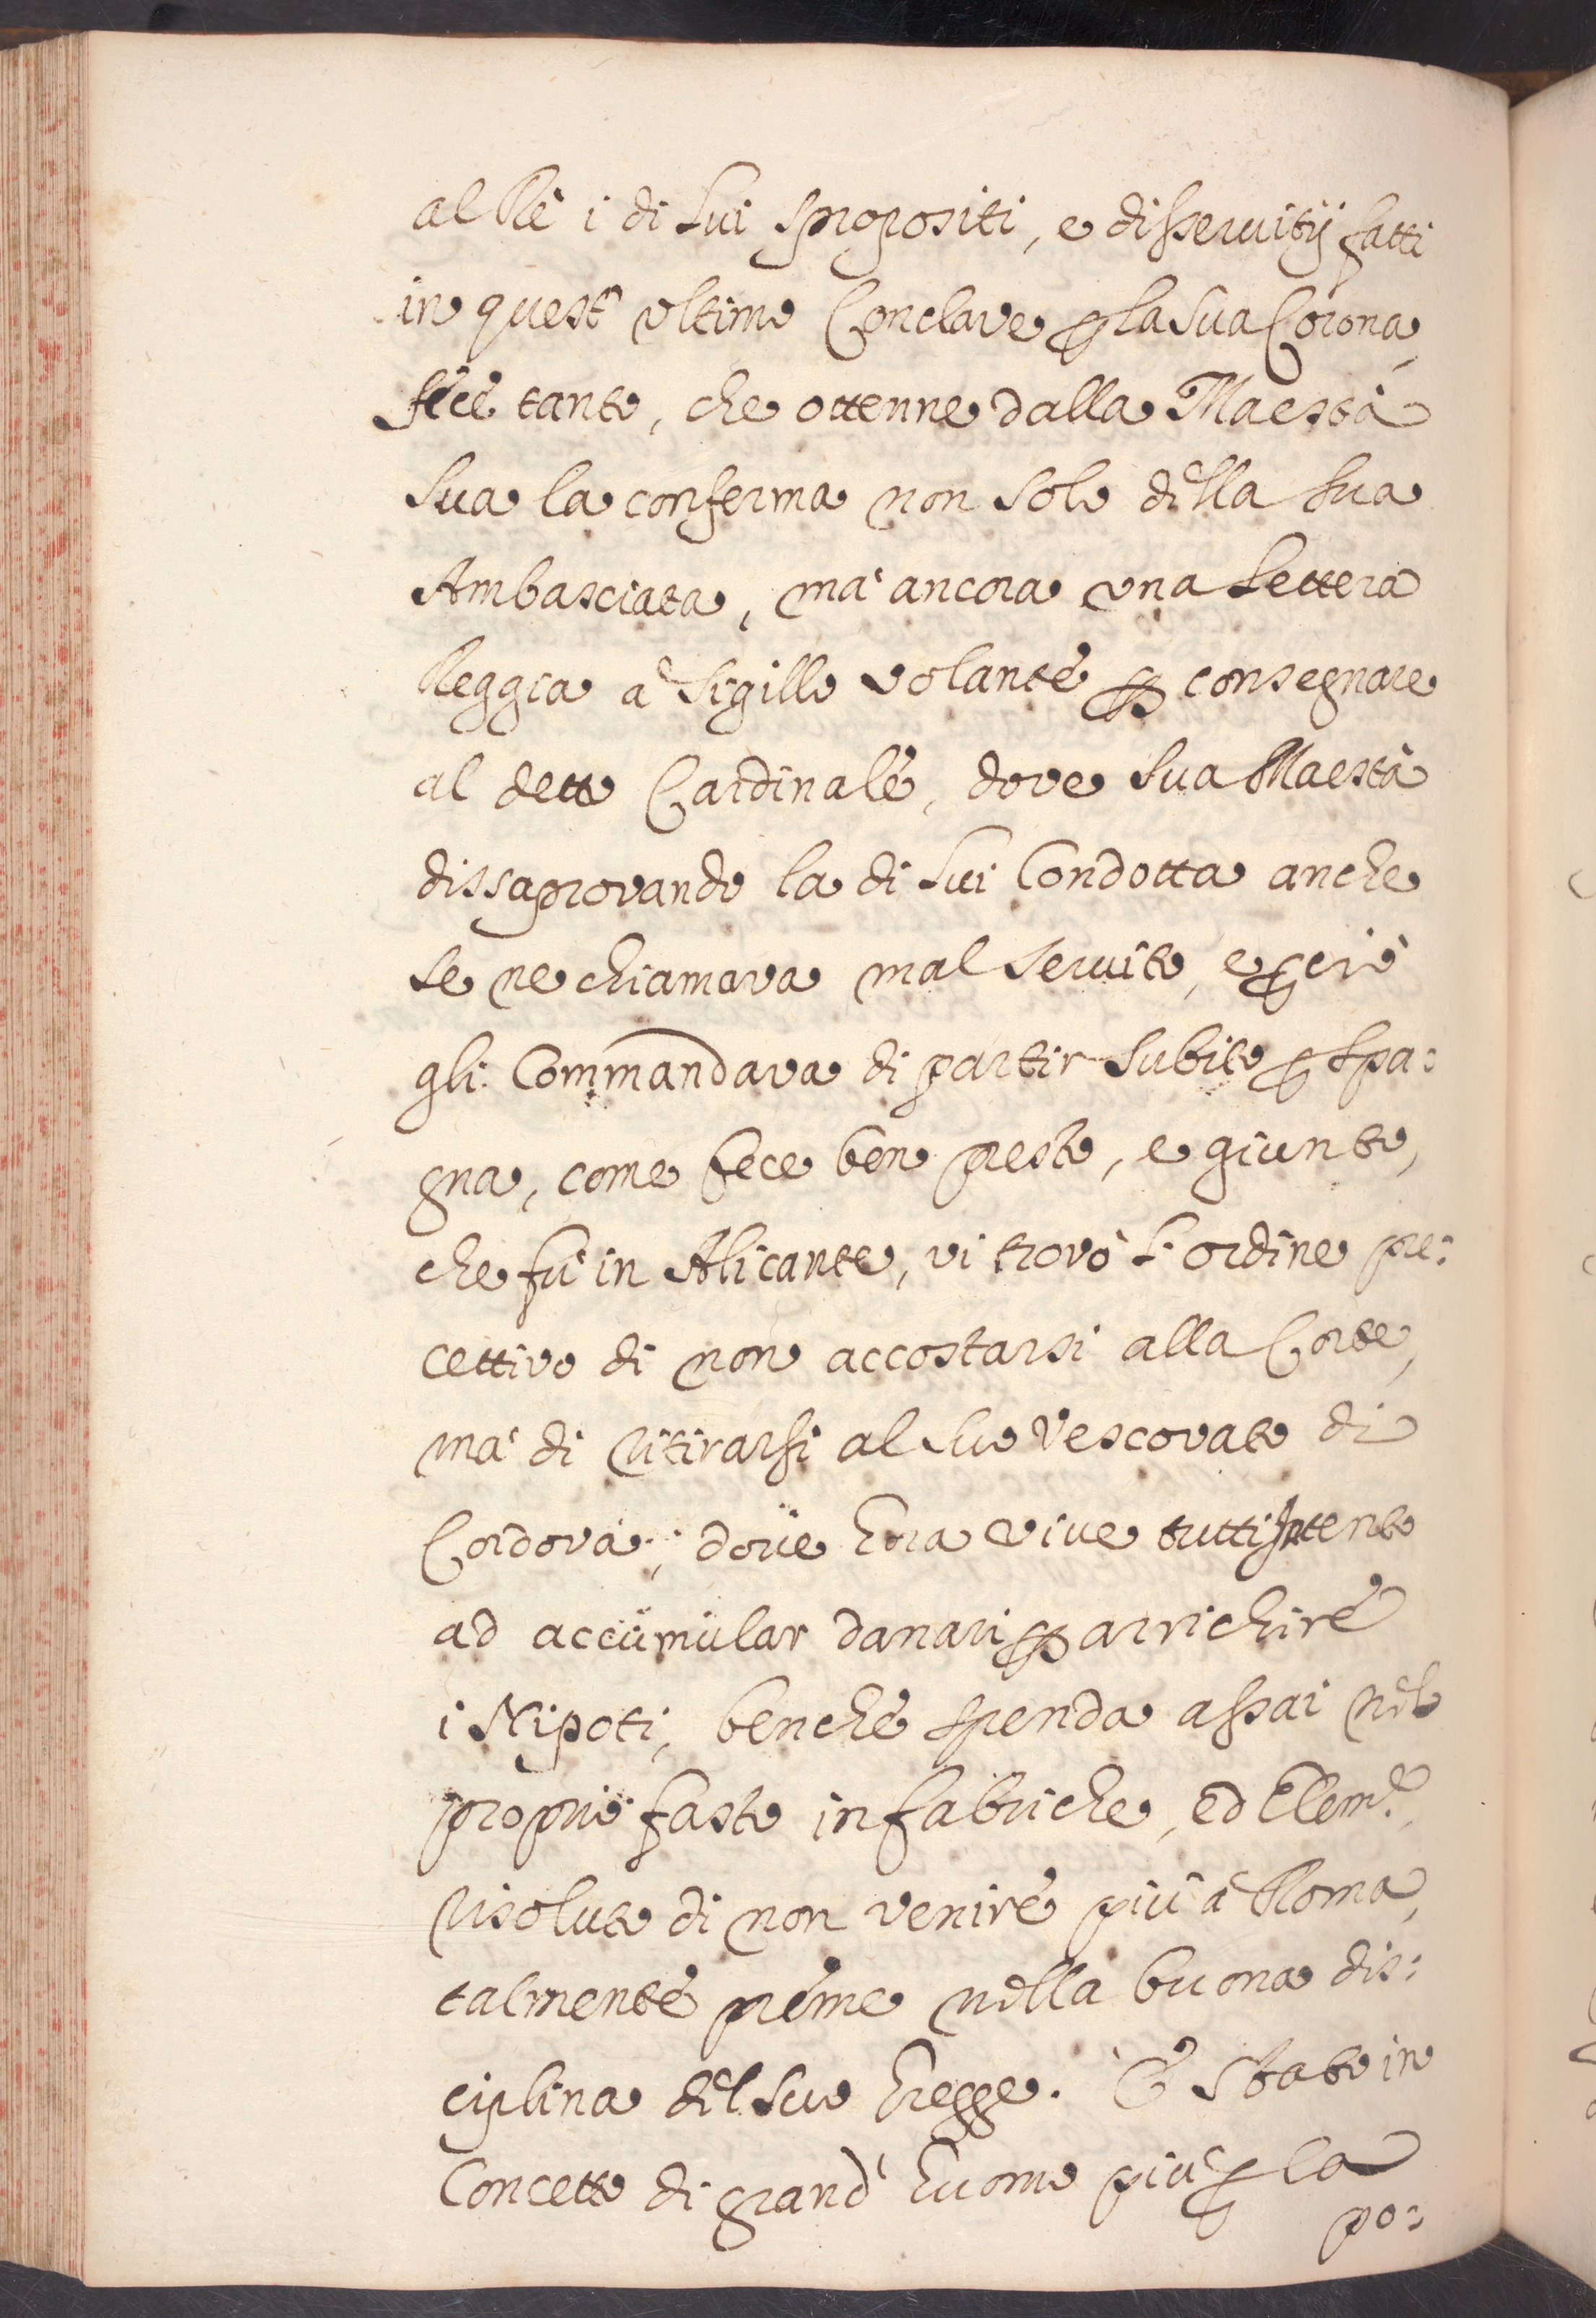 al Rè i di lui spropositi, e disseruitij fatti
in quest' vltimo Conclave p la sua Corona,
fece tanto, che ottenne dalla Maestà
sua la conferma non solo della sua
Ambasciata, mà ancora vna lettera
Reggia à sigillo volante p consegnare
al detto Cardinale, dove sua Maestà
dissaprovando la di lui Condotta anche
se ne chiamava mal seruito, e p ciò
gli Commandava di partir subito p Spa:
gna, come fece ben presto, e giunto,
che fù in Alicante, vi trovò l'ordine pre:
cettivo di non accostarsi alla Corte,
mà di ritirarsi al suo Vescovato di
Cordova; doue hora viue tutt'intento
ad accumular danari p arrichire
i Nipoti, benchè spenda assai nel
proprio fasto in fabriche, ed Elem.e,
risoluto di non venire più à Roma,
talmente preme nella buona dis:
ciplina del suo Gregge. È stato in
Concetto di grand' huomo più p la
po: